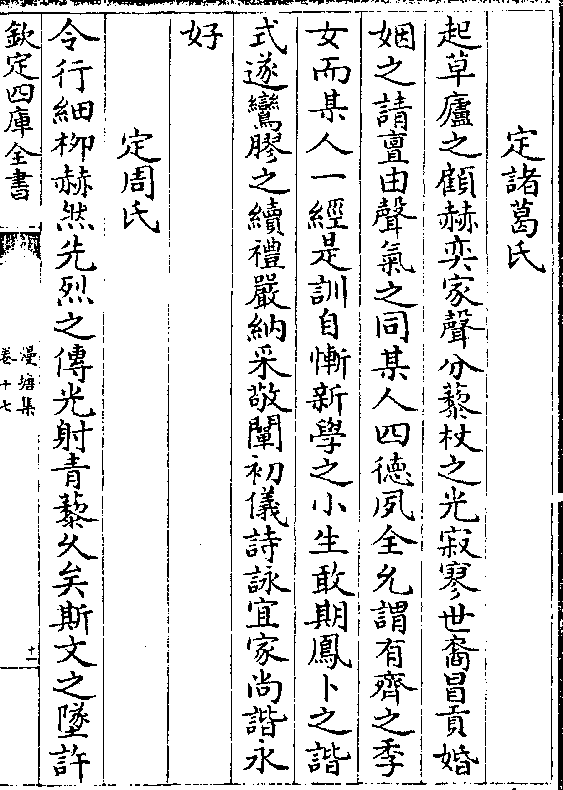 定諸葛氏
起草廬之顧赫奕家聲分藜杖之光寂寥世裔冒貢婚
姻之請亶由聲氣之同某人四德夙全允謂有齊之季
女而某人一經是訓自慚新學之小生敢期鳳卜之諧
式遂鸞膠之續禮嚴納采敬闡初儀詩詠宜家尚諧永
好
定周氏
令行細柳赫然先烈之傳光射青藜久矣斯文之墜許
欽定四庫全書
漫塘集
卷十七
十二